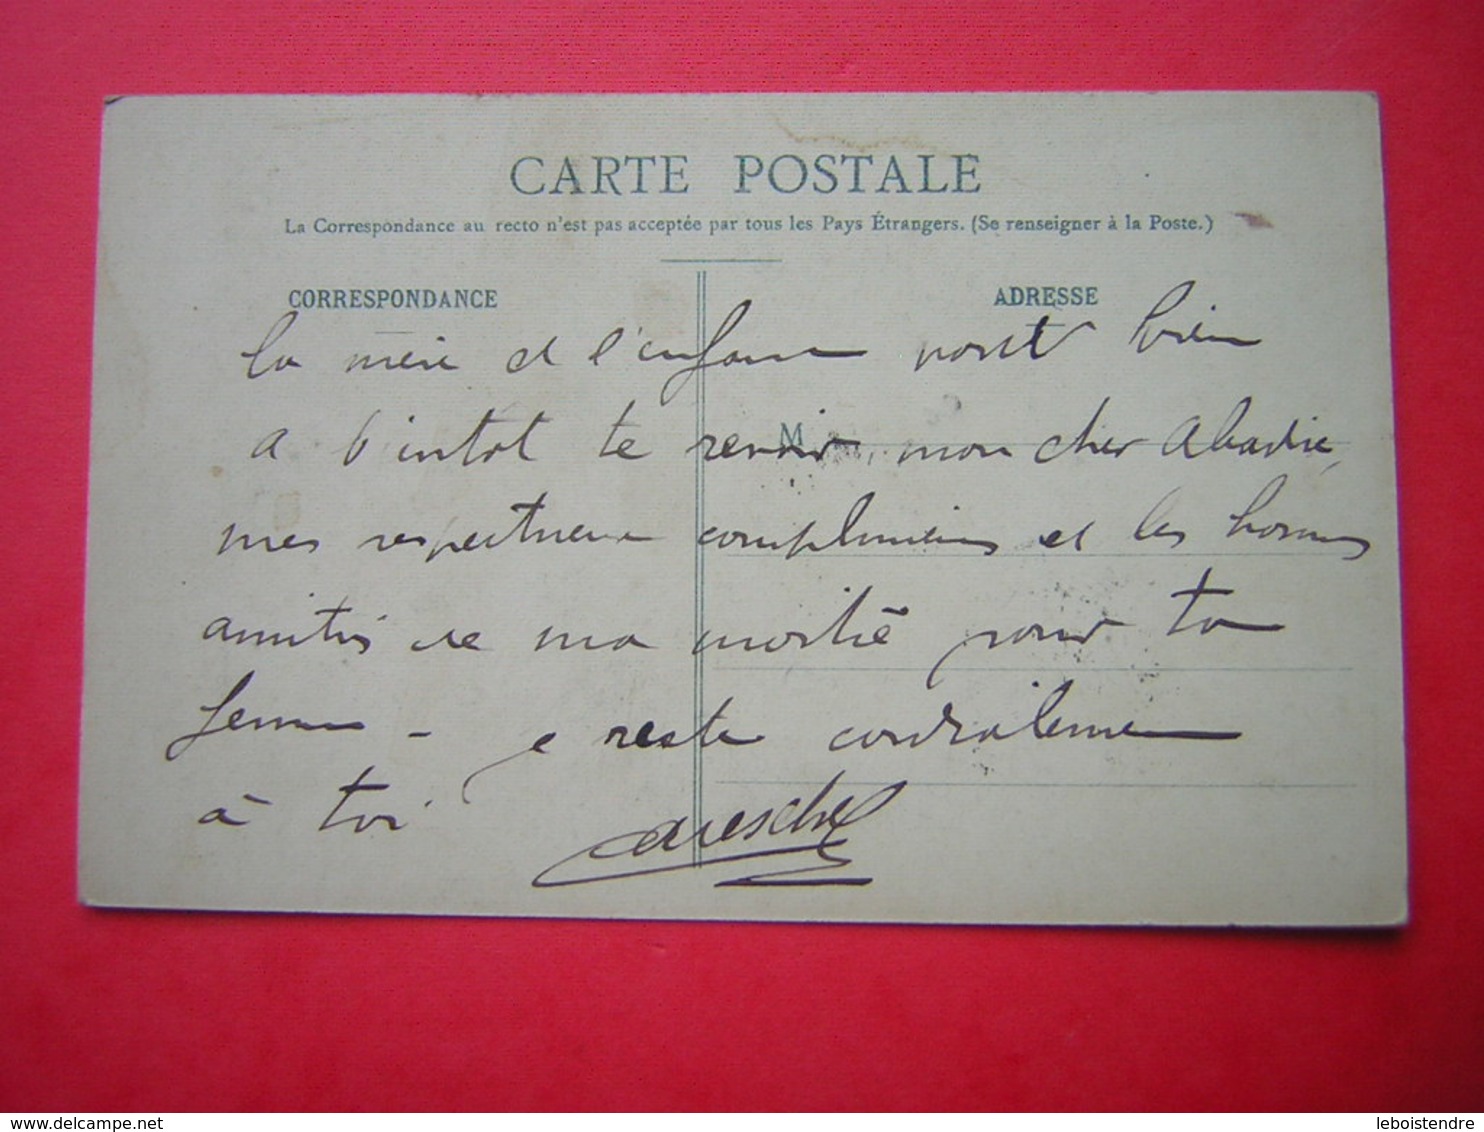 CARTE POSTALE
La Correspondance au recto n'est pas acceptée par tous les Pays Étrangers. (Se renseigner à la Poste.)
CORRESPONDANCE
ADRESSE
la mère et l'enfant vont bien
M
a bintot te revoir mon cher Abadie,
mes respectueux compliments et les bonnes
amitiés de ma moitié pour ta
femme - je reste cordialement
à toi
delcampe.net
leboistendre